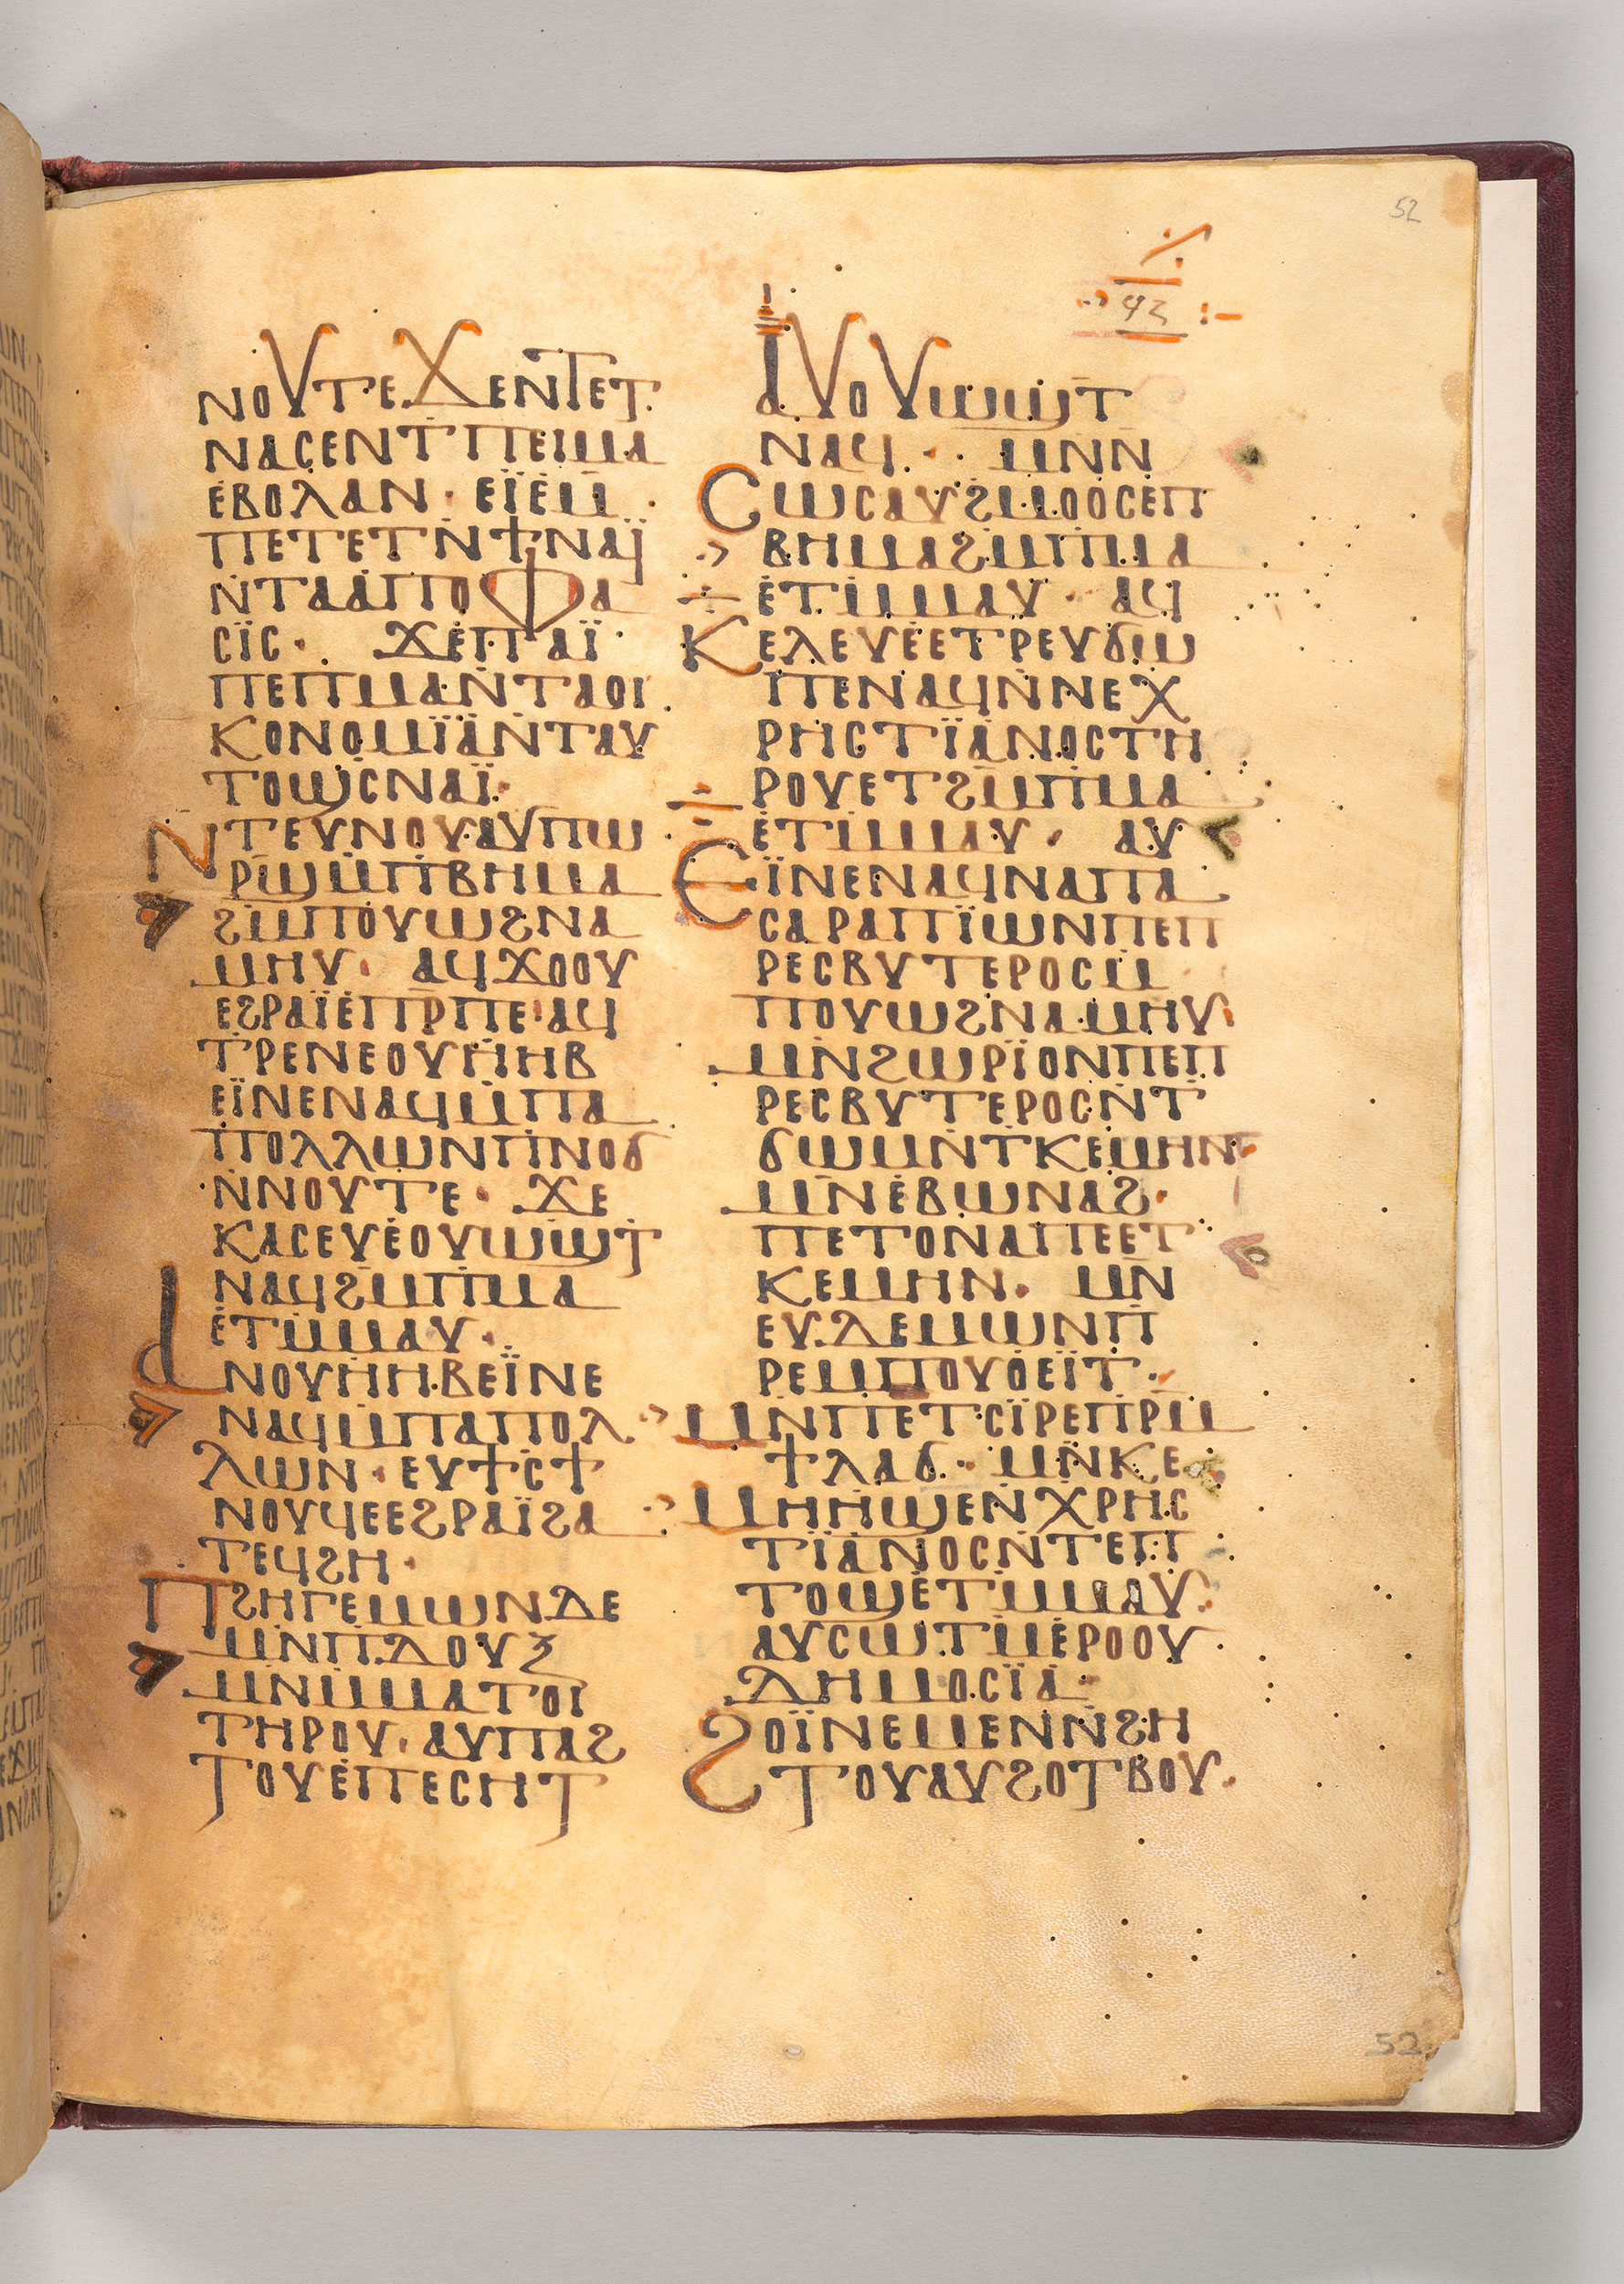 52
ϥⲅ
ⲛⲟⲩⲧⲉ ϫⲉⲛϯⲉⲧ
ⲛⲁⲥⲉⲛⲧ ⲡⲉⲓⲙⲁ
ⲉⲃⲟⲗ ⲁⲛ · ⲉⲓ̈ⲉⲙ̄
ⲡⲉⲧⲉⲧⲛ̇ϯ ⲛⲁⲓ̈
ⲛ̇ⲧⲁⲁⲡⲟⲫⲁ
ⲥⲓ̈ⲥ · ϫⲉⲡⲁⲓ̈
ⲡⲉ ⲡⲙⲁ ⲛ̇ⲧⲁⲟⲓ
ⲕⲟⲛⲟⲙⲓ̈ⲁ ⲛ̇ⲧⲁⲩ
ⲧⲟϣⲥ ⲛⲁⲓ̈ ·
ⲛⲧⲉⲩⲛⲟⲩ ⲁⲩⲡⲱ
ⲣϣ̄ ⲙ̇ⲡⲃⲏⲙⲁ
ϩⲙ̄ⲡⲟⲩⲱϩ ⲛⲁ
ⲙⲏⲩ · ⲁϥϫⲟⲟⲩ
ⲉϩⲣⲁⲓ̈ ⲉⲡⲣⲡⲉ · ⲁϥ
ⲧⲣⲉⲛⲉⲟⲩⲏ̇ⲏⲃ
ⲉⲓ̈ⲛⲉ ⲛⲁϥ ⲙ̇ⲡⲁ
ⲡⲟⲗⲗⲱⲛ ⲡⲛⲟϭ
ⲛ̇ⲛⲟⲩⲧⲉ · ϫⲉ
ⲕⲁⲥ ⲉⲩⲉ̇ⲟⲩⲱϣⲧ
ⲛⲁϥ ϩⲙ̄ⲡⲙⲁ
ⲉ̇ⲧⲙ̇ⲙⲁⲩ ·
ⲁⲛⲟⲩⲏ̇ⲏⲃ ⲉⲓ̈ⲛⲉ
ⲛⲁϥ ⲙ̇ⲡⲁⲡⲟⲗ
ⲗⲱⲛ · ⲉⲩϯⲥϯ
ⲛⲟⲩϥⲉ ⲉϩⲣⲁⲓ̈ ϩⲁ
ⲧⲉϥϩⲏ ·
ⲡϩⲏⲅⲉⲙⲱⲛ ⲇⲉ
ⲙⲛ̄ⲡⲇⲟⲩⲝ
ⲙⲛ̄ⲙ̇ⲙⲁⲧⲟⲓ
ⲧⲏⲣⲟⲩ · ⲁⲩⲡⲁϩ
ⲧⲟⲩ ⲉ̇ⲡⲉⲥⲏⲧ
ⲁⲩⲟⲩⲱϣⲧ
ⲛⲁϥ · ⲙⲛ̄ⲛ̄
ⲥⲱⲥ ⲁⲩϩⲙⲟⲟⲥ ⲉⲡ
ⲃⲏⲙⲁ ϩⲙ̄ⲡⲙⲁ
ⲉ̇ⲧⲙ̇ⲙⲁⲩ · ⲁϥ
ⲕⲉⲗⲉⲩⲉ̇ ⲉⲧⲣⲉⲩϭⲱ
ⲡⲉ ⲛⲁϥ ⲛ̇ⲛⲉⲭ
ⲣⲏⲥⲧⲓ̈ⲁⲛⲟⲥ ⲧⲏ
ⲣⲟⲩ ⲉⲧϩⲙ̄ⲡⲙⲁ
ⲉ̇ⲧⲙ̇ⲙⲁⲩ · ⲁⲩ
ⲉⲓ̈ⲛⲉ ⲛⲁϥ ⲛⲁⲡⲁ
ⲥⲁⲣⲁⲡⲓ̈ⲱⲛ ⲡⲉⲡ
ⲣⲉⲥⲃⲩⲧⲉⲣⲟⲥ ⲙ̄
ⲡⲟⲩⲱϩ ⲛⲁⲙⲏⲩ
ⲙⲛ̄ϩⲱⲣⲓ̈ⲟⲛ ⲡⲉⲡ
ⲣⲉⲥⲃⲩⲧⲉⲣⲟⲥ ⲛ̇ⲧ
ϭⲱⲙ ⲛ̇ⲧⲕⲉⲙⲏⲛ
ⲙⲛ̄ⲉ̇ⲃⲱⲛⲁϩ ·
ⲡⲉⲧⲟⲛⲁⲡⲉ ⲉⲧ
ⲕⲉⲙⲏⲛ · ⲙⲛ̄
ⲉⲩⲇⲉⲙⲱⲛ ⲡ
ⲣⲉⲙⲡⲟⲩⲟ̇ⲉⲓ̈ⲧ ·
ⲙⲛ̄ⲡⲉⲧⲥⲓ̈ⲣⲉ ⲡⲣⲙ̄
ϯⲗⲁϭ · ⲙⲛ̄ⲕⲉ
ⲙⲏⲏϣⲉ ⲛ̇ⲭⲣⲏⲥ
ⲧⲓ̈ⲁⲛⲟⲥ ⲛ̇ⲧⲉⲡ
ⲧⲟϣ ⲉ̇ⲧⲙ̇ⲙⲁⲩ
ⲁⲩⲥⲱⲧⲙ̄ ⲉ̇ⲣⲟⲟⲩ
ⲇⲏⲙⲟⲥⲓ̈ⲁ
ϩⲟⲓ̈ⲛⲉ ⲙⲉⲛ ⲛ̇ϩⲏ
ⲧⲟⲩ ⲁⲩϩⲟⲧⲃⲟⲩ ·
52